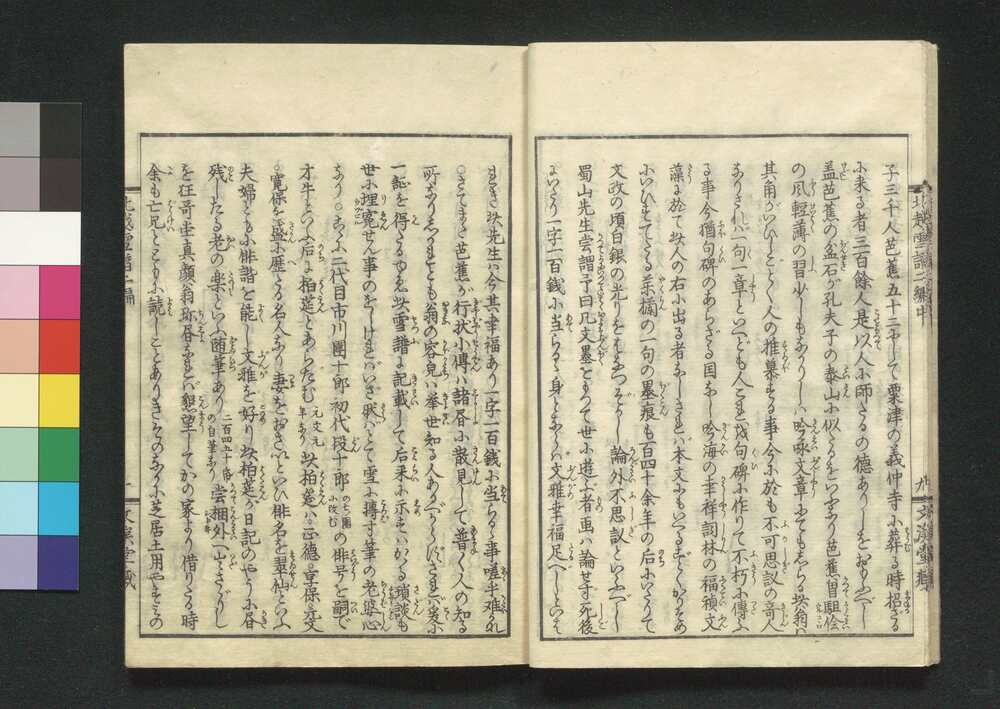 子三千人芭蕉五十二にして粟津の義仲寺に葬る時招ざる
に来る者三百餘人是以人に師たるの徳ありしをおもふべし
盖芭蕉の盆石が孔夫子の泰山に似たるをいふなり芭蕉曽駔儈
の風軽薄の習少しもなかりしは吟咏文章にてもしらる此翁は
其角がいひしごとく人の推慕する事今に於も不可思議の奇人
なりされば一句一章といへども人これを句碑に作りて不朽に傳ふ
る事今猶句碑のあらざる国なし吟海の幸祥詞林の福禎文
藻に於て此人の右に出る者なしされば本文にもいへるごとくかりそめ
にいひすてたる薬欄の一句の墨痕も百四十余年の后にいたりて
文政の頃白銀の光りをはなつぞかし 論外不思議といふべし
蜀山先生嘗謂予曰凡文墨をもつて世に遊ぶ者画は論せず死後
にいたり一字一百銭に当らるゝ身とならば文雅幸福足べしといは
れき此先生は今其幸福あり一字一百銭に当らるゝ事嗟乎難かな
○さてまた芭蕉が行状小傳は諸昏に散見して普く人の知る
所なりしかれども翁の容皃は挙世知る人あるべからずさればこゝに
一証を得たるゆゑ此雪譜に記載して后来に示すはかゝる瑣談も
世に埋冤せん事のをしければいざ然ばとて雪に摶す筆の老婆心
なり○こゝに二代目市川團十郎初代段十郎のち團に改むの俳号を嗣で
才牛といふ后に柏莚とあらたむ元文元年なり此柏莚は正徳享保元文
寛保を盛に歴たる名人なり妻をおさいといひ俳名を翠仙といふ
夫婦ともに俳諧を能し文雅を好り此柏莚が日記のやうに昏
残したる老の楽といふ随筆あり二百四十帋の自筆なり嘗梱外へいださゞりし
を狂哥堂真顔翁珎昏なれば懇望してかの家より借りたる時
余も亡兄とともに読しことありきそのなかに芝居土用やすみの